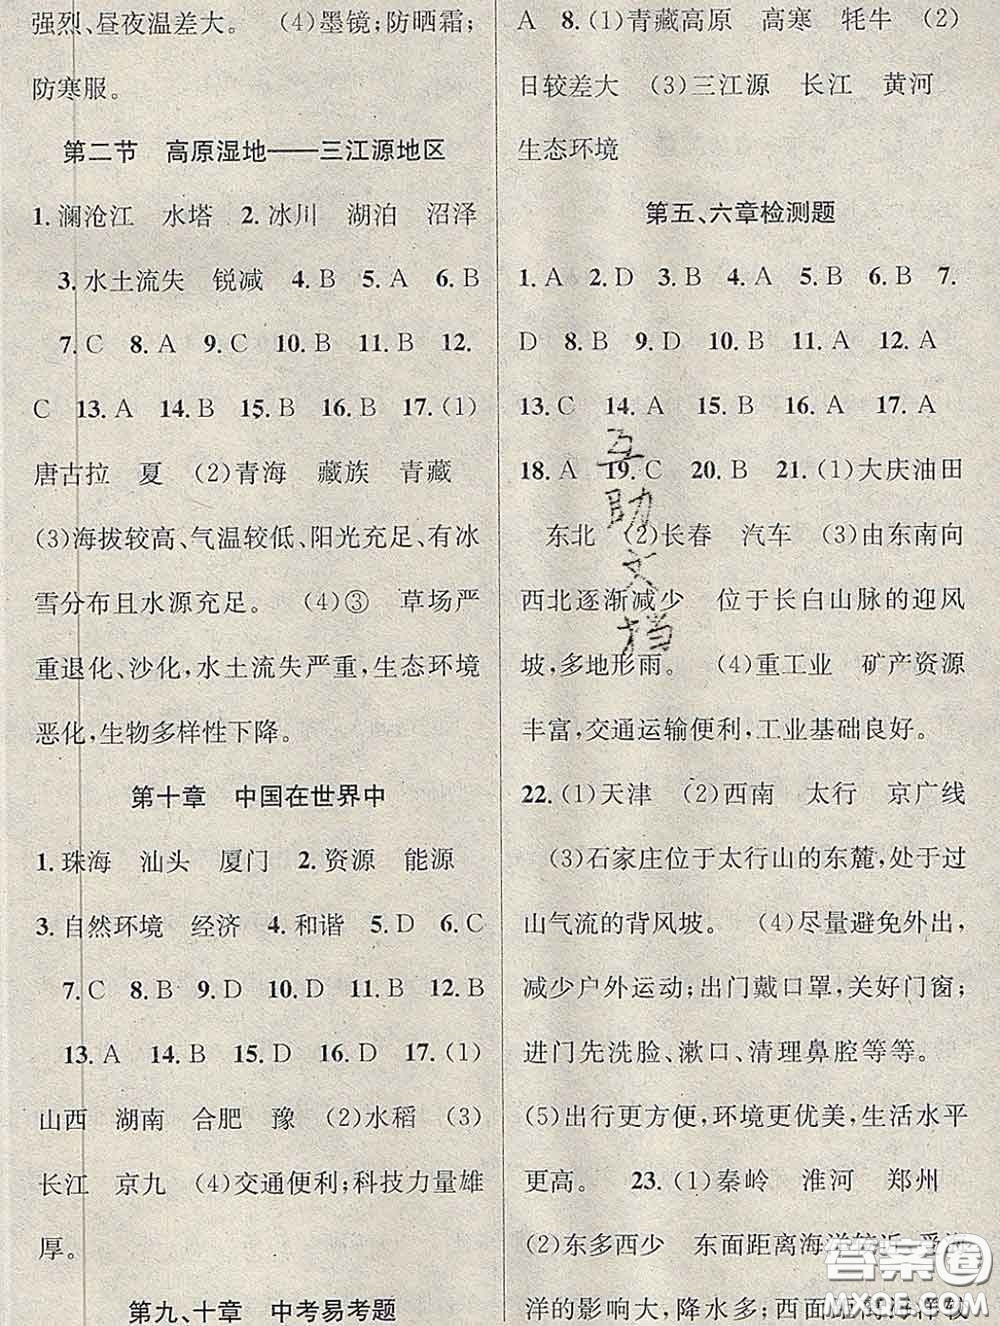 强烈、昼夜温差大。 (4)墨镜;防晒霜;
防寒服。
第二节 高原湿地——三江源地区
1.澜沧江 水塔 2.冰川 湖泊 沼泽
3.水土流失 锐减 4.B 5.A 6.B
7.C 8.A 9.C 10.B 11.B 12.
C 13.A 14.B 15.B 16.B 17.(1)
唐古拉 夏 (2)青海 藏族 青藏
(3)海拔较高、气温较低、阳光充足、有冰
雪分布且水源充足。 (4)③ 草场严
重退化、沙化,水土流失严重,生态环境
恶化,生物多样性下降。
第十章 中国在世界中
1.珠海 汕头 厦门 2.资源 能源
3.自然环境 经济 4.和谐 5.D 6.C
7.C 8.B 9.D 10.D 11.B 12.B
13.A 14.B 15.D 16.D 17.(1)
山西 湖南 合肥 豫 (2)水稻 (3)
长江 京九 (4)交通便利;科技力量雄
厚。
第九、十章 中考易考题
A 8.(1)青藏高原 高寒 牦牛 (2)
日较差大 (3)三江源 长江 黄河
生态环境
第五、六章检测题
1.A 2.D 3.B 4.A 5.A 6.B 7.
D 8.B 9.D 10.B 11.A 12.A
13.C 14.A 15.B 16.A 17.A
18.A 19.C 20.B 21.(1)大庆油田
东北 (2)长春 汽车 (3)由东南向
西北逐渐减少 位于长白山脉的迎风
坡,多地形雨。 (4)重工业 矿产资源
丰富,交通运输便利,工业基础良好。
22.(1)天津 (2)西南 太行 京广线
(3)石家庄位于太行山的东麓,处于过
山气流的背风坡。 (4)尽量避免外出,
减少户外运动;出门戴口罩,关好门窗;
进门先洗脸、漱口、清理鼻腔等等。
(5)出行更方便,环境更优美,生活水平
更高。 23.(1)秦岭 淮河 郑州
(2)东多西少 东面距离海洋较近,受海
洋的影响大,降水多;西面距离海洋较
互助文档
答案圈
MXQE.COM